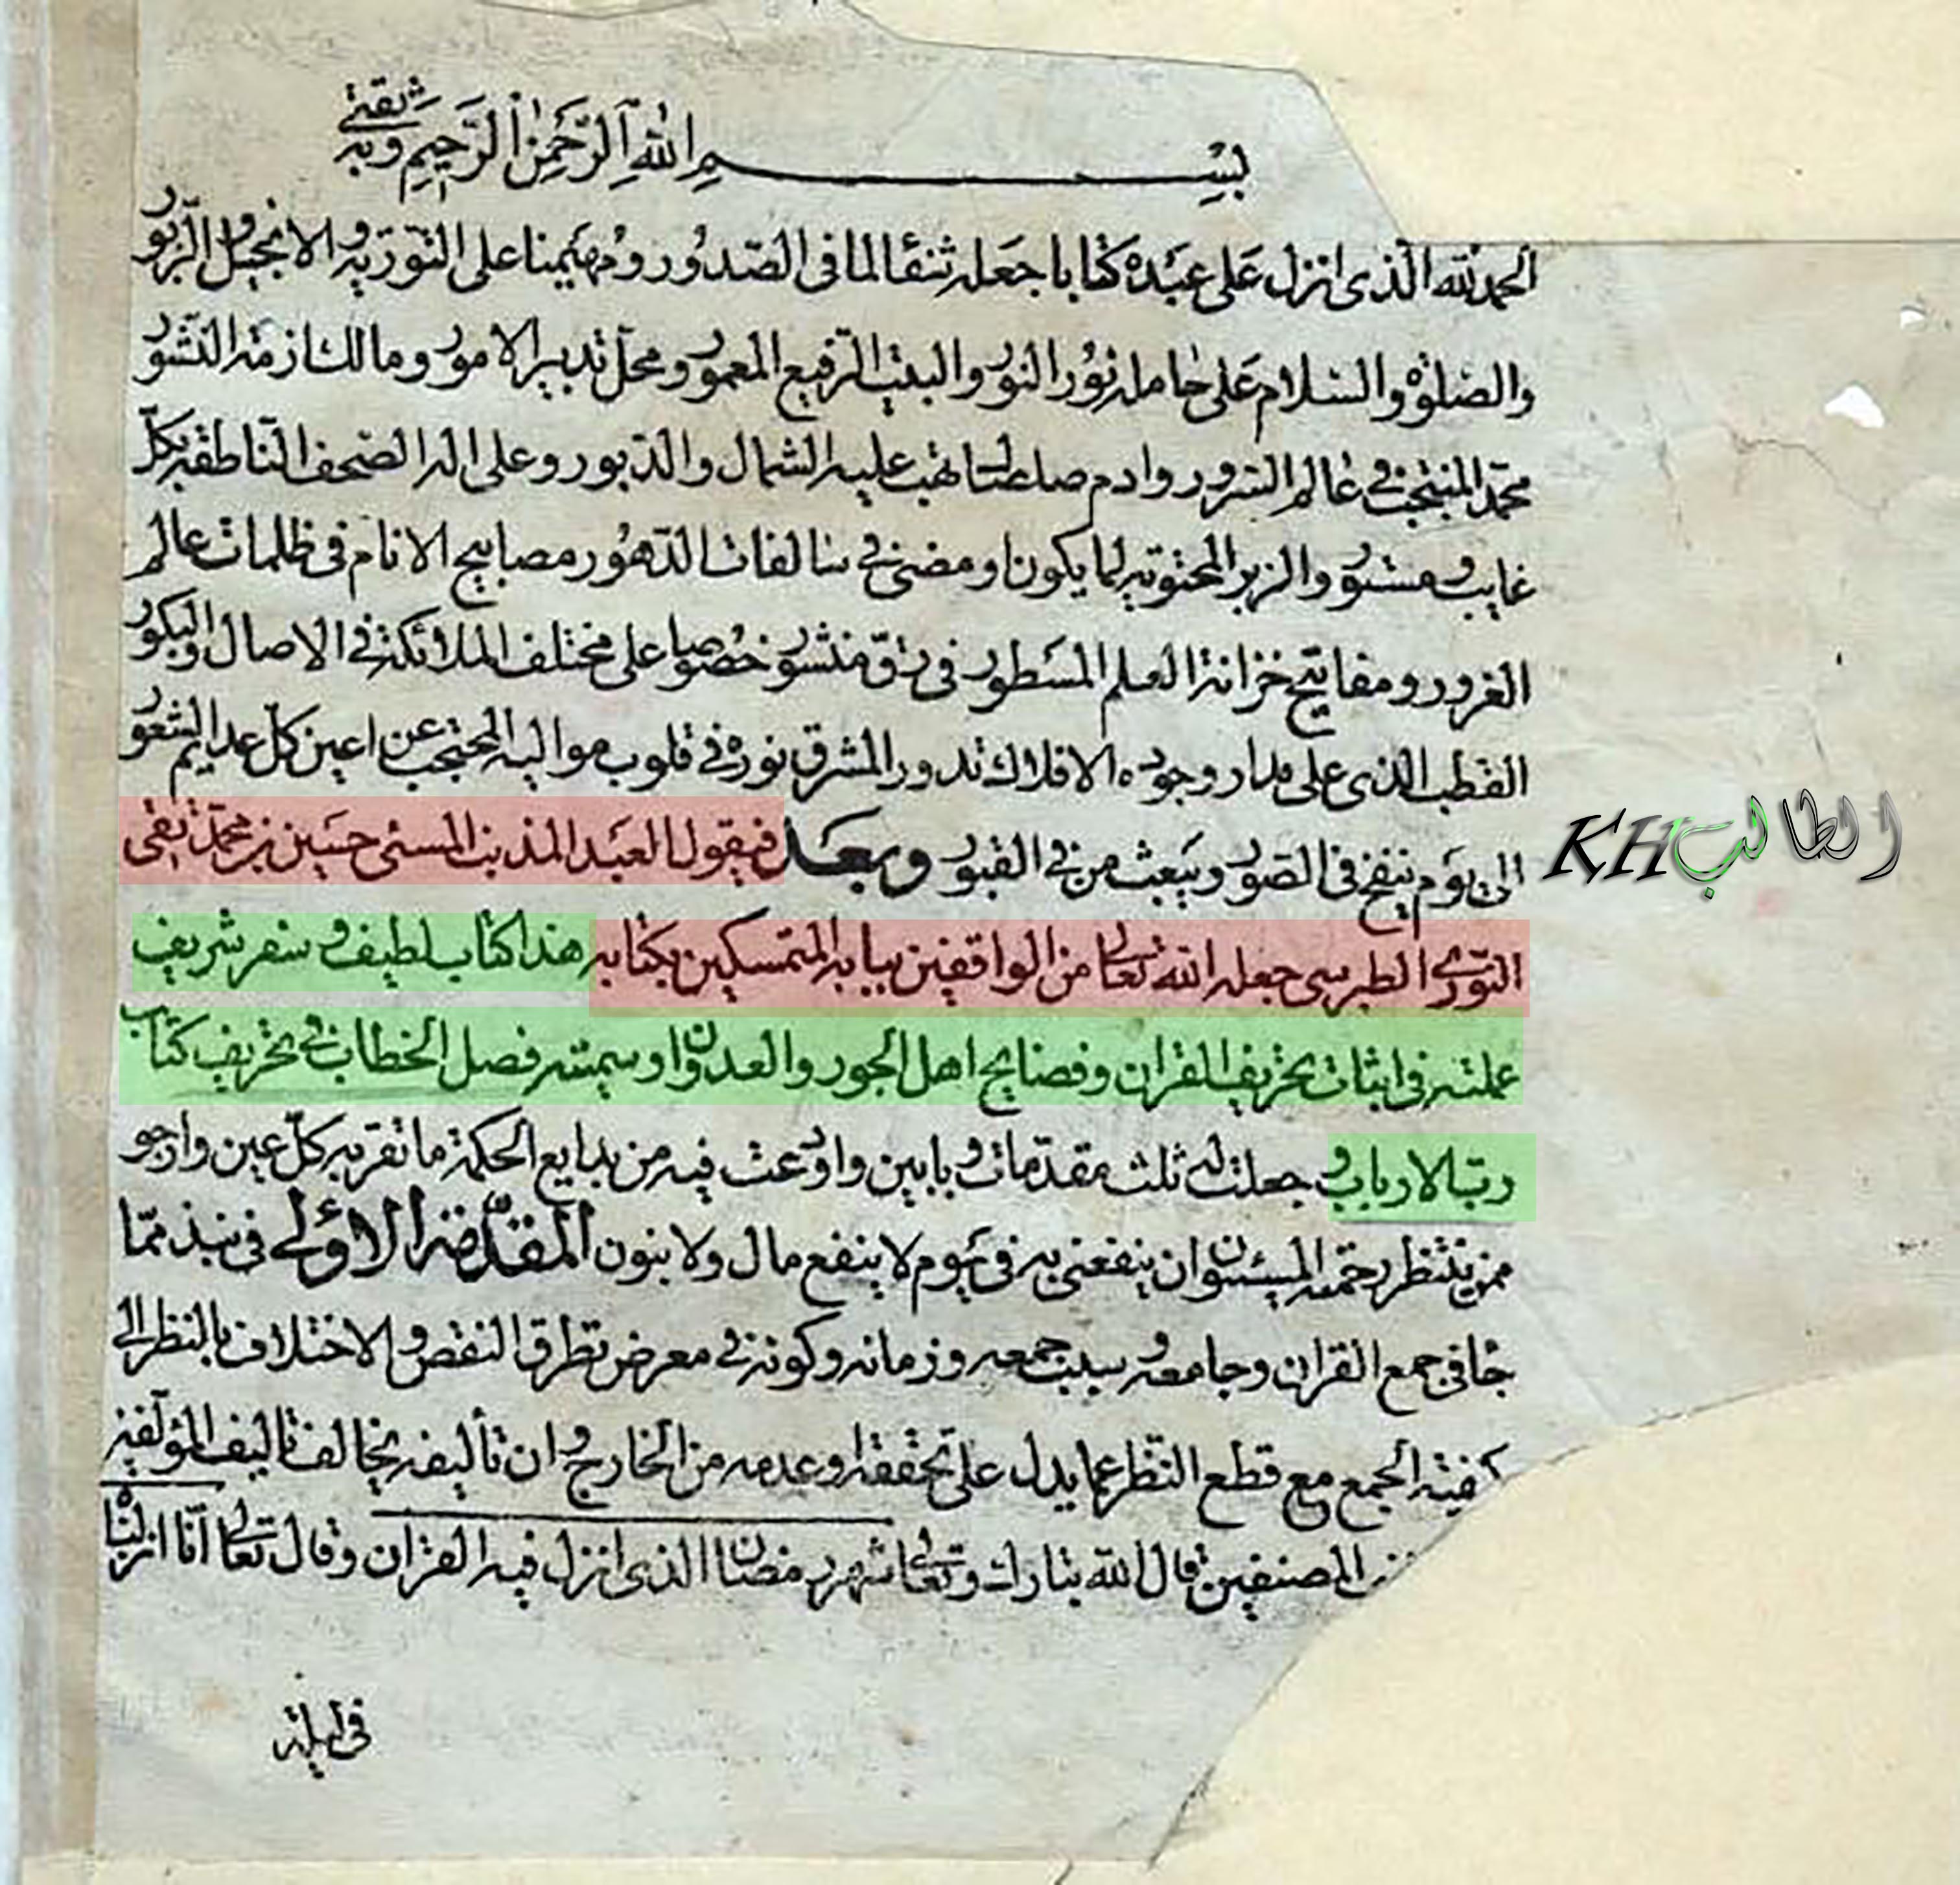 بِسْمِ اللهِ الرَّحْمٰنِ الرَّحِيمِ وبه ثقتي
الحمد لله الذى انزل على عبده كتابا جعله شفآ لما فى الصّدور ومُهَيمنا على التّوریة والانجيل والزّبور
والصّلوة والسّلام على حامله نور النور والبيت الرفيع المعمور ومحلّ تدبير الامور ومالك ازمة النّشور
محمّد المنتجب فى عالم السّرور وادم صلصال تهب عليه الشمال والدّبور وعلى اله الصّحف النّاطقة بكلّ
غايب ومستور والزبر المحتوية لما يكون او مضى فى سالفات الدّهُور مصابيح الانام فى ظلمات عالم
الغرور ومفاتيح خزانة العلم المسطور فى رقّ منشور خصُوصا على مختلف الملائكة فى الاصال والبكور
القطب الذى على مدار وجوده الافلاك تدور المشرق نوره فى قلوب مواليه المحتجب عن اعين كلّ عديم الشعور
الى يوم ينفخ فى الصّور ويبعث من فى القبور وبعد فيقول العبد المذنب المسئ حسين بن محمّد تقى
النّورى الطبرسى جعله الله تعالى من الواقفين ببابه المتمسكين بكتابه هذا كتاب لطيف وسفر شريف
عملته فى اثبات تحريف القران وفضايح اهل الجور والعدوان وسميته فصل الخطاب فى تحريف كتاب
ربّ الارباب وجعلت له ثلث مقدّمات وبابين واودعت فيه من بدايع الحكمة ما تقر به كلّ عين وارجو
ممن ينتظر رحمته المسيئون ان ينفعنى به فى يوم لا ينفع مال ولا بنون المقدّمة الاولى فى نبذ ممّا
جا فى جمع القران وجامعه وسبب جمعه وزمانه وكونه فى معرض تطرق النقص والاختلاف بالنظر الى
كيفية الجمع مع قطع النّظر عما يدل على تحققه او عدمه من الخارج وان تأليفه يخالف تاليف المؤلفين
المصنفين قال الله تبارك وتعالى شهر رمضان الذى انزل فيه القران وقال تعالى انّا انزلناه
فى ليلة
الطالب KH